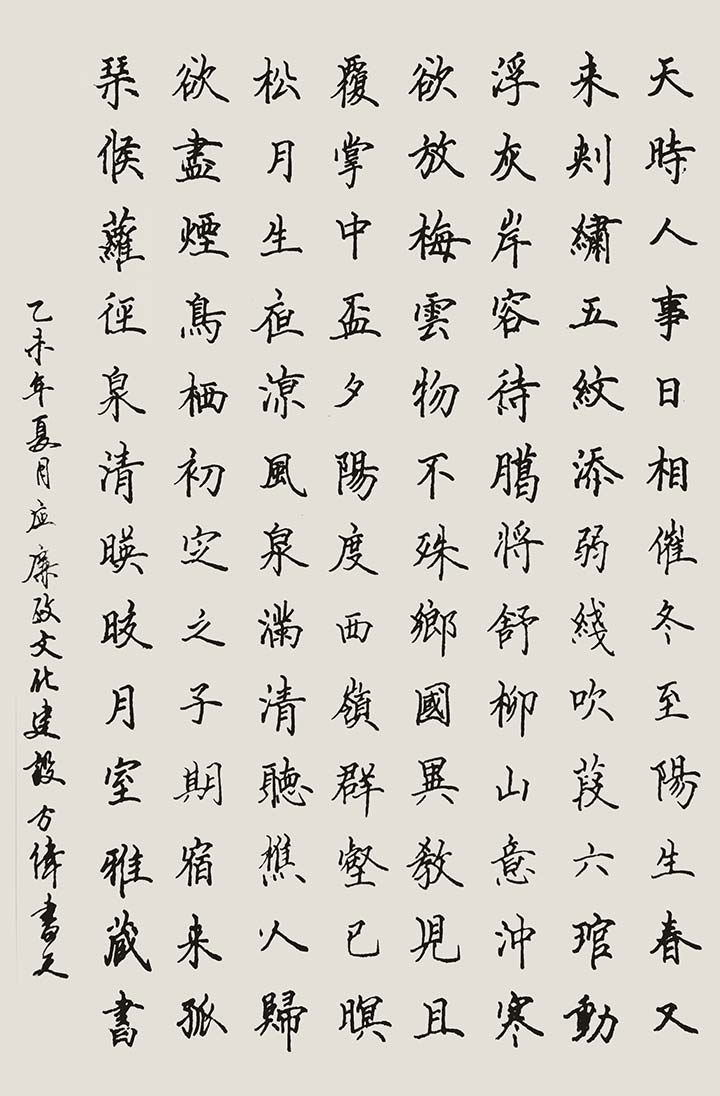 天時人事日相催冬至陽生春又
来刾繡五紋添弱綫吹葭六琯動
浮灰岸容待臈将舒柳山意沖寒
欲放梅雲物不殊鄉國異教児且
覆掌中盃夕陽度西嶺群壑已暝
松月生夜涼風泉滿清聽樵人歸
欲盡煙鳥栖初定之子期宿来孤
琹候蘿径泉清暎晈月室雅蔵書
乙未年夏月应廉政文化建設方偉書之